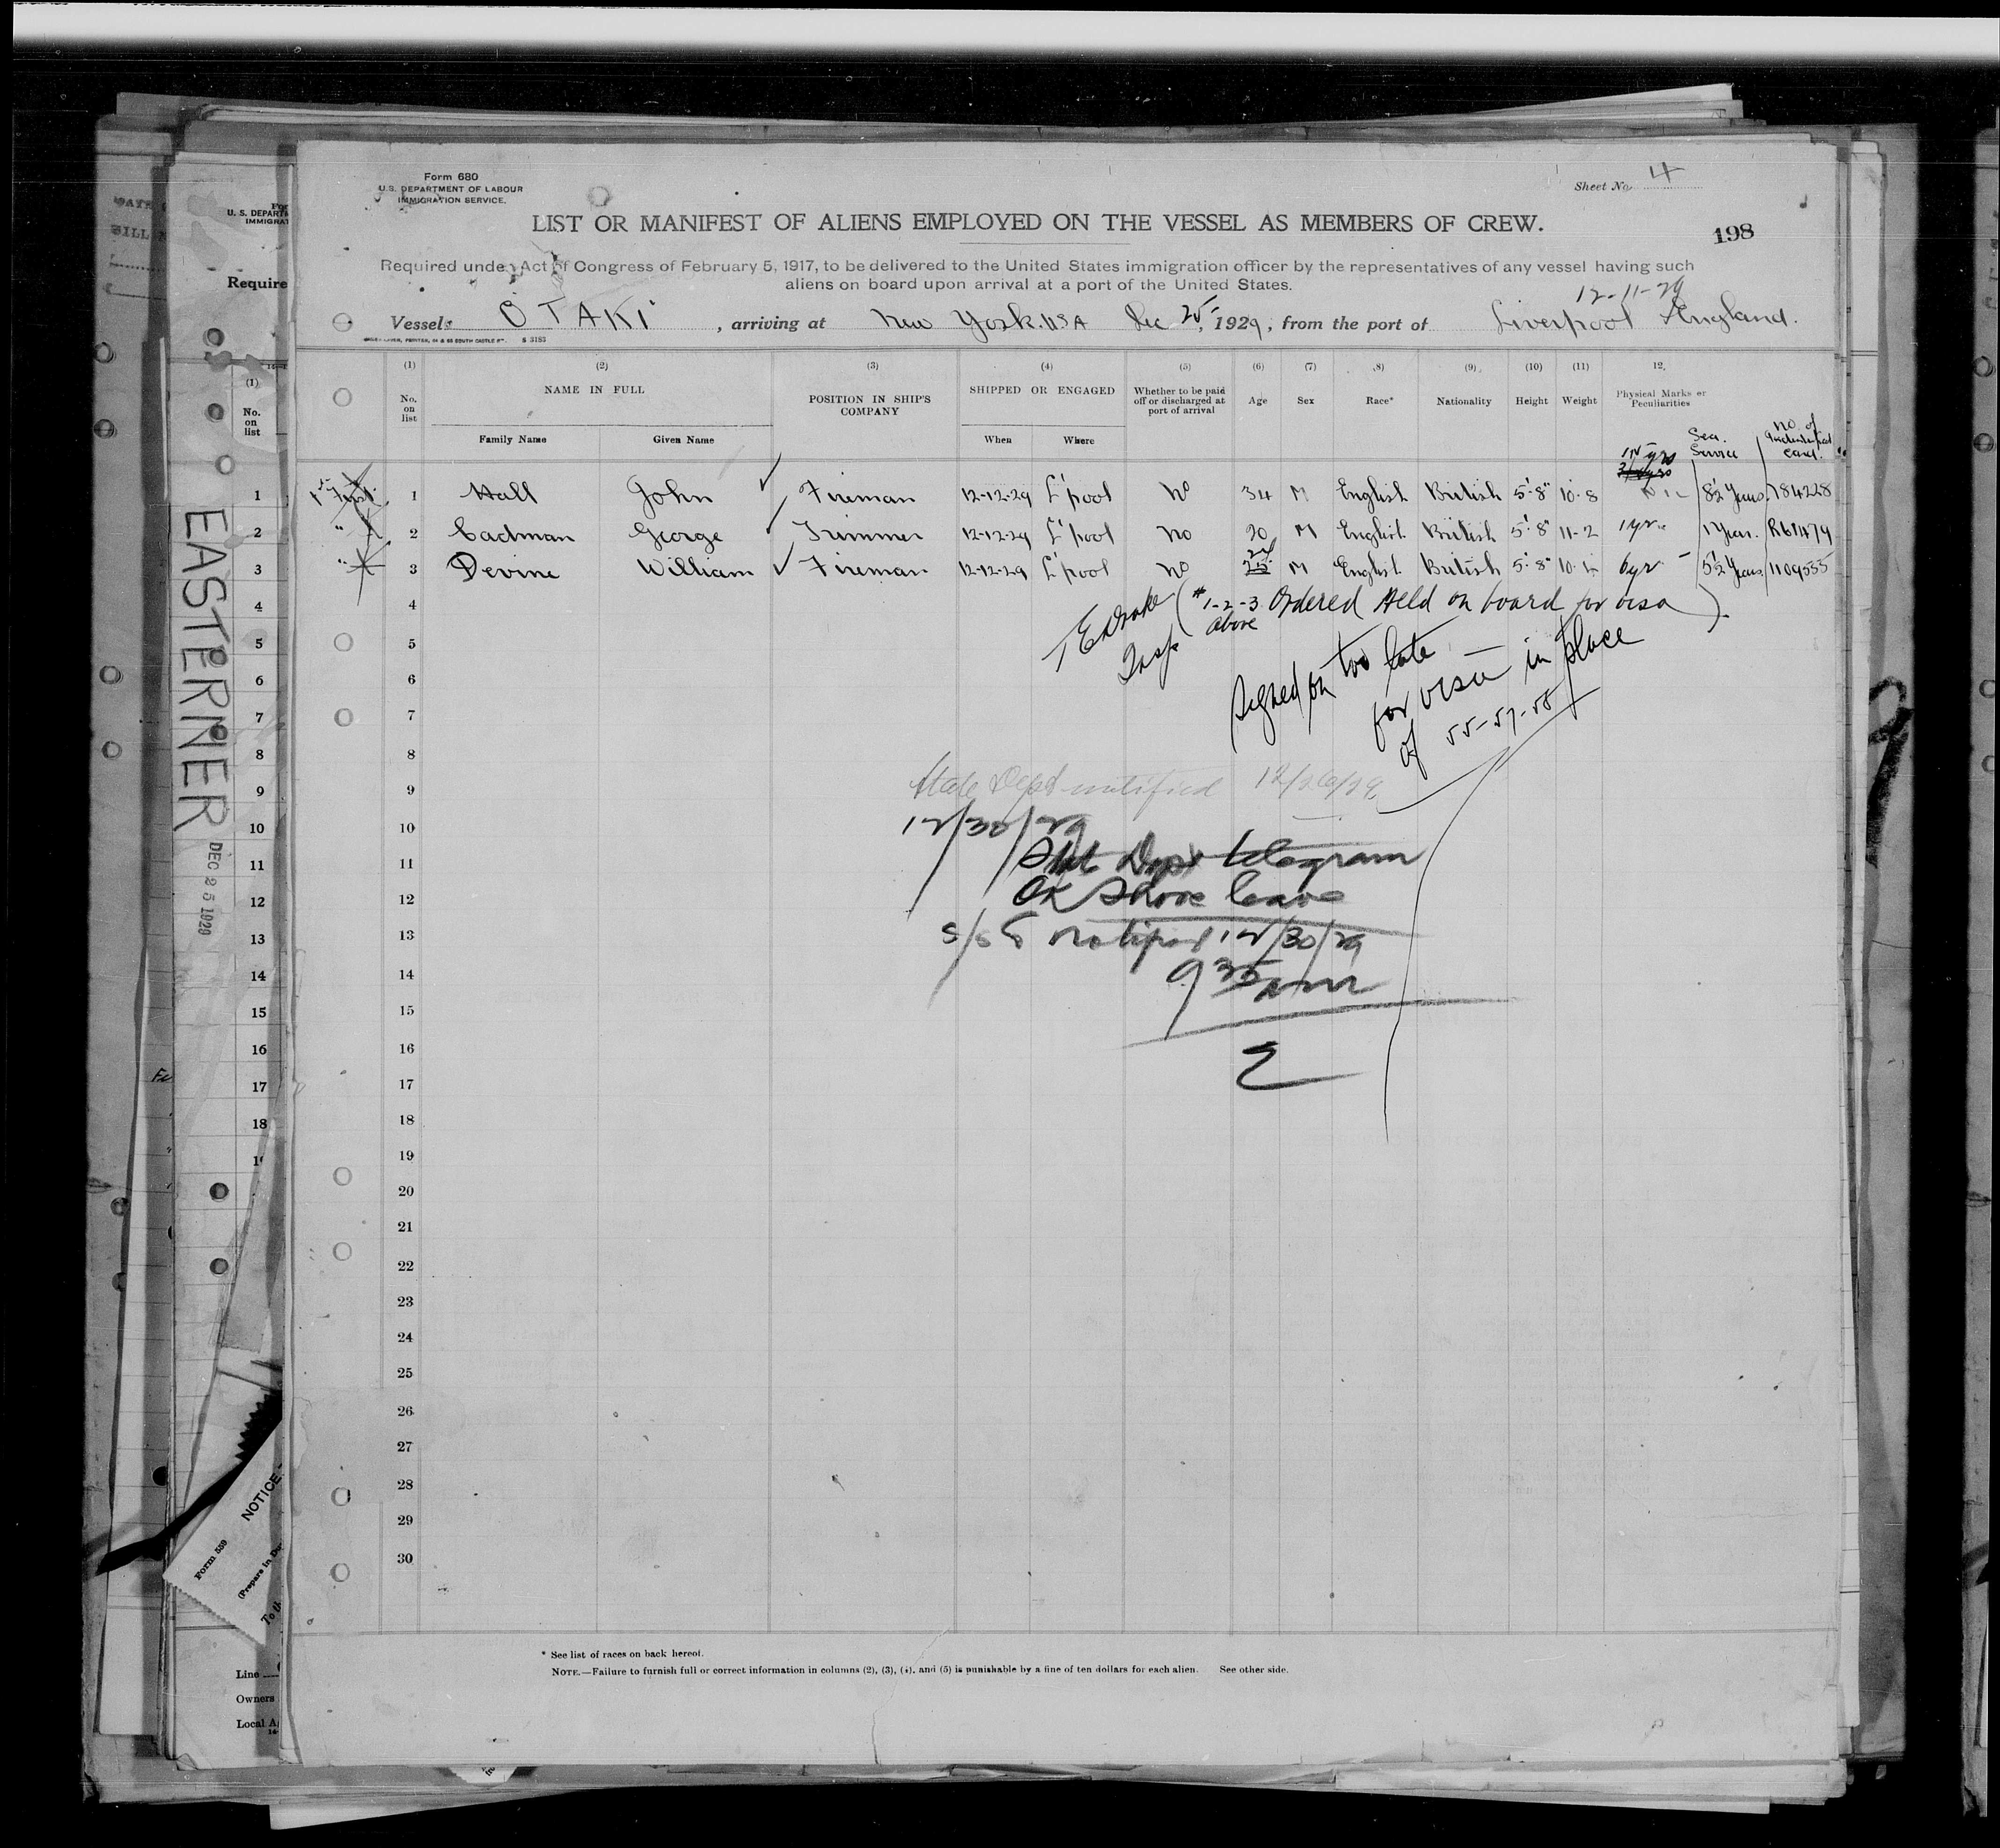 Form 680
U.S. DEPARTMENT OF LABOUR
IMMIGRATION SERVICE.
Sheet No. 4
LIST OR MANIFEST OF ALIENS EMPLOYED ON THE VESSEL AS MEMBERS OF CREW.
198
Required under Act of Congress of February 5, 1917, to be delivered to the United States immigration officer by the representatives of any vessel having such
aliens on board upon arrival at a port of the United States.
12-11-29
Vessel: OTAKI, arriving at New York. USA Dec 25, 1929, from the port of Liverpool England.
(1) (2) (3) (4) (5) (6) (7) (8) (9) (10) (11) 12,
No. on list NAME IN FULL POSITION IN SHIP'S COMPANY SHIPPED OR ENGAGED Whether to be paid off or discharged at port of arrival Age Sex Race* Nationality Height Weight Physical Marks or Peculiarities
Family Name Given Name When Where Sea Service No. of card.
1 Hall John Fireman 12-12-29 L'pool No 34 M English British 5'-8" 10-8 8½ Years. 784228
2 Cadman George Trimmer 12-12-29 L'pool No 20 M English British 5'-8" 11-2 1yr 1 Year. R61479
3 Devine William Fireman 12-12-29 L'pool No M English British 5'-8" 6yr 5½ Years. 1109555
4
(#1-2-3 above Ordered Held on board for visa)
Insp
5
6
Signed on too late
for visa in place
of 55-57-58
7
8
9 State Dept notified 12/26/29
10 12/30/29
11 Dept telegram
12 OK Shore leave
13 notified 12/30/29
14 9 35 am
15
16
17
18
19
20
21
22
23
24
25
26
27
28
29
30
* See list of races on back hereof.
NOTE.—Failure to furnish full or correct information in columns (2), (3), (4), and (5) is punishable by a fine of ten dollars for each alien. See other side.
U. S. DEPART
IMMIGRA
Require
(1)
No.
on
list
1
2
3
4
5
6
7
8
9
10
11
12
13
14
15
16
17
18
EASTERNER
DEC 25 1929
NOTICE
Form 559
(Prepare in
Line
Owners
Local A